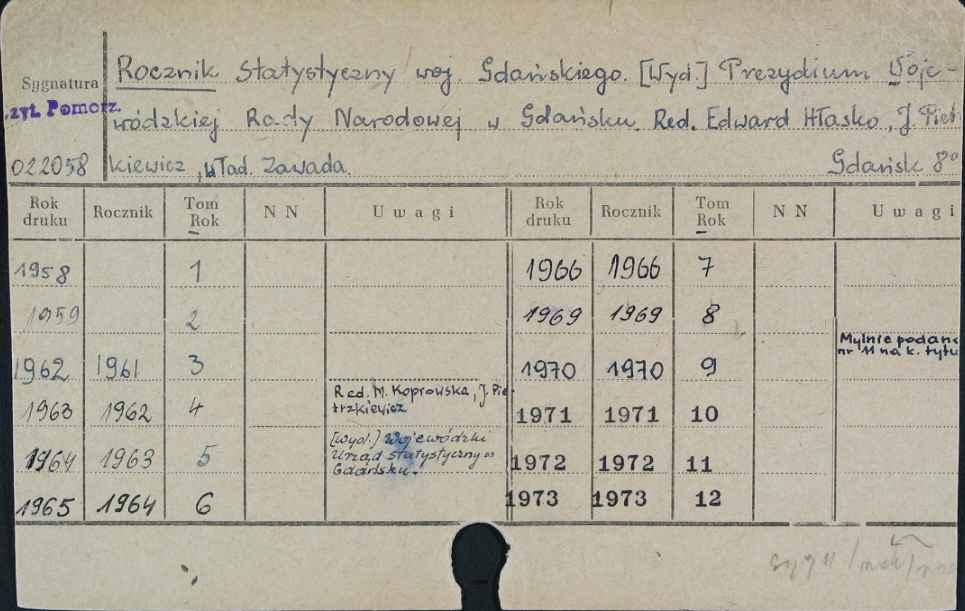 Sygnatura
Rocznik Statystyczny woj. Gdańskiego. [Wyd.] Prezydium Woje-
czyt. Pomorz.
wódzkiej Rady Narodowej w Gdańsku. Red. Edward Hłasko, J. Piet
022058
kiewicz, Wład. Zawada. Gdańsk 8°
Rok druku Rocznik Tom Rok NN Uwagi Rok druku Rocznik Tom Rok NN Uwagi
1958 1 1966 1966 7
1959 2 1969 1969 8
1962 1961 3 1970 1970 9 Mylnie podane
nr 11 na k. tytu
1963 1962 4 Red. M. Koprowska, J. Pie-
trzkiewicz 1971 1971 10
1964 1963 5 [Wyd.] Wojewódzki
Urząd statystyczny w
Gdańsku. 1972 1972 11
1965 1964 6 1973 1973 12